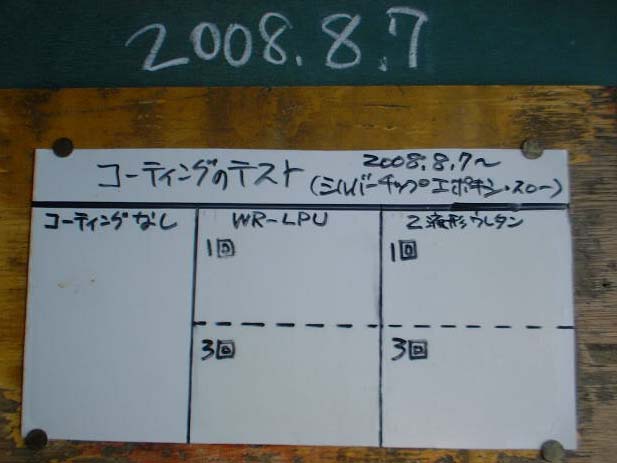 2008.8.7
コーティングのテスト
2008.8.7〜
(シルバーチップエポキシ・スロー)
コーティングなし
WR-LPU
2液形ウレタン
1回
1回
3回
3回